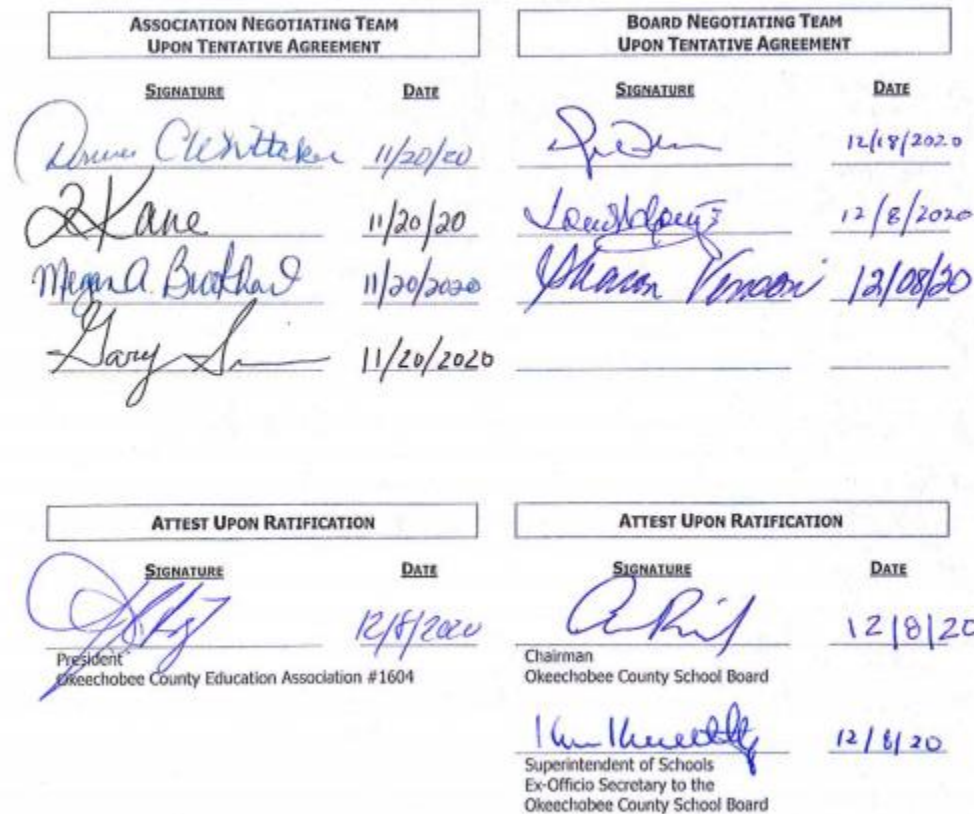 ASSOCIATION NEGOTIATING TEAM
UPON TENTATIVE AGREEMENT
SIGNATURE DATE
Whittaker 11/20/20
Kane 11/20/20
Megan A. 11/20/2020
Gary 11/20/2020
BOARD NEGOTIATING TEAM
UPON TENTATIVE AGREEMENT
SIGNATURE DATE
12/18/2020
12/8/2020
Sharon Vinson 12/08/20
ATTEST UPON RATIFICATION
SIGNATURE DATE
12/8/2020
President
Okeechobee County Education Association #1604
ATTEST UPON RATIFICATION
SIGNATURE DATE
12/8/20
Chairman
Okeechobee County School Board
12/8/20
Superintendent of Schools
Ex-Officio Secretary to the
Okeechobee County School Board